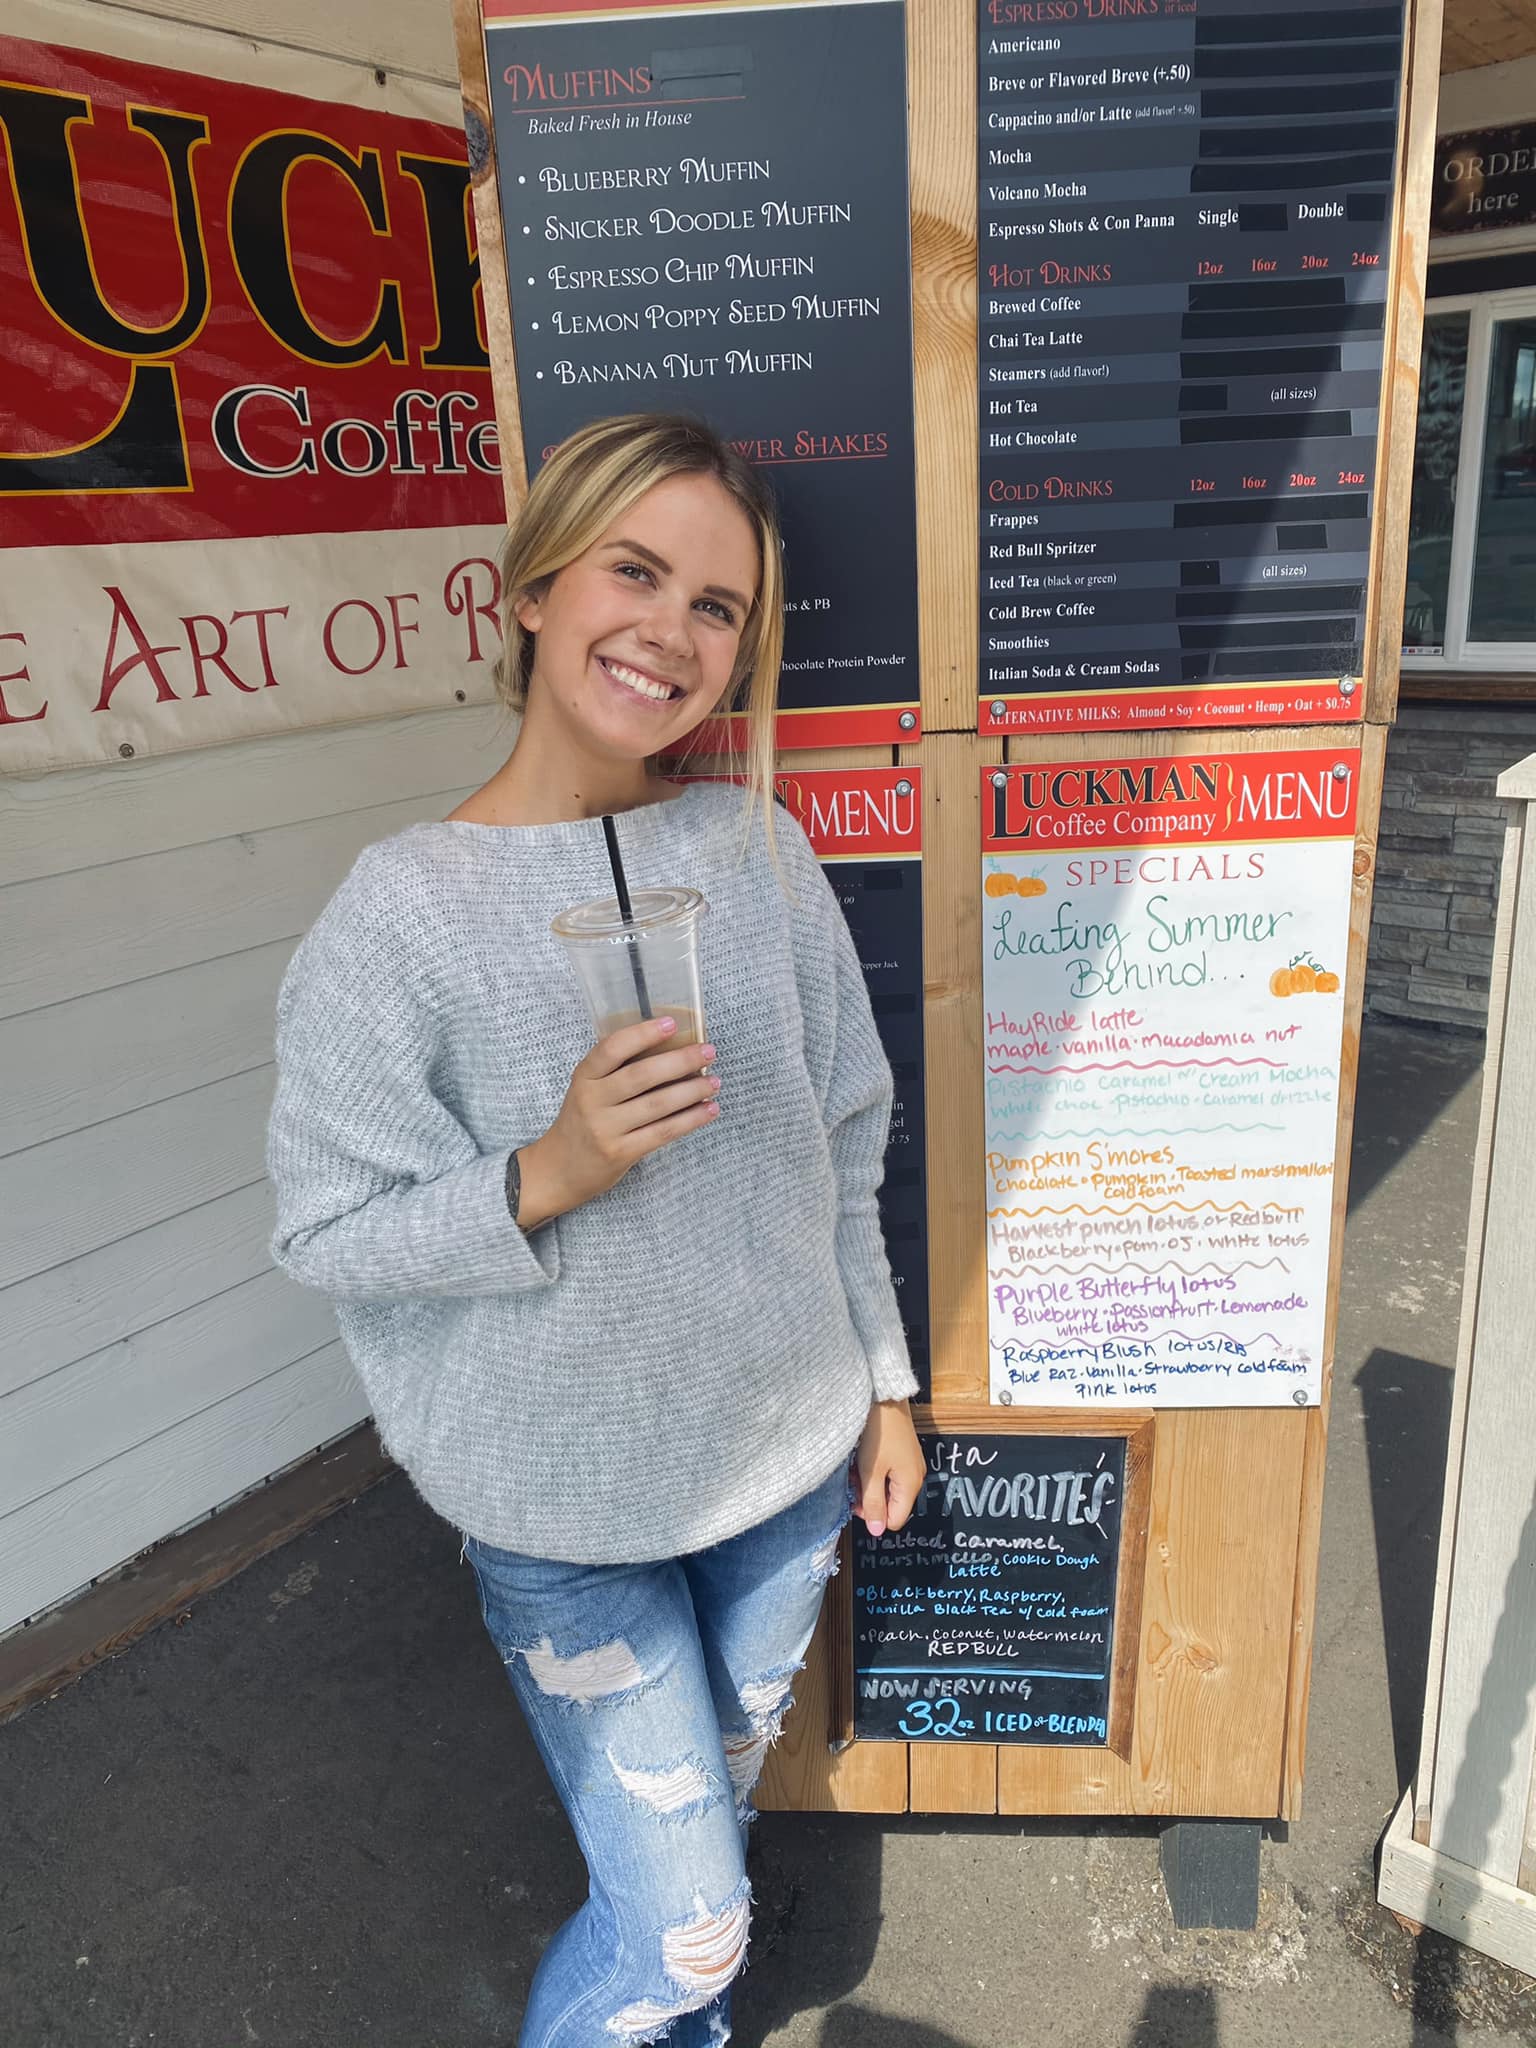 UCK
Coffe
E ART OF R
MUFFINS
Baked Fresh in House
• BLUEBERRY MUFFIN
• SNICKER DOODLE MUFFIN
• ESPRESSO CHIP MUFFIN
• LEMON POPPY SEED MUFFIN
• BANANA NUT MUFFIN
WER SHAKES
ats & PB
hocolate Protein Powder
MENU
1.00
epper Jack
in
gel
3.75
ap
ESPRESSO DRINKS or iced
Americano
Breve or Flavored Breve (+.50)
Cappacino and/or Latte (add flavor! +.50)
Mocha
Volcano Mocha
Espresso Shots & Con Panna Single Double
HOT DRINKS 12oz 16oz 20oz 24oz
Brewed Coffee
Chai Tea Latte
Steamers (add flavor!)
Hot Tea (all sizes)
Hot Chocolate
COLD DRINKS 12oz 16oz 20oz 24oz
Frappes
Red Bull Spritzer
Iced Tea (black or green) (all sizes)
Cold Brew Coffee
Smoothies
Italian Soda & Cream Sodas
ALTERNATIVE MILKS: Almond • Soy • Coconut • Hemp • Oat + $0.75
LUCKMAN
Coffee Company
MENU
SPECIALS
Leafing Summer
Behind...
HayRide latte
maple · vanilla · macadamia nut
Pistachio caramel n' cream Mocha
white choc · pistachio · caramel drizzle
Pumpkin S'mores
chocolate · pumpkin · Toasted marshmallow
cold foam
Harvest punch lotus or Redbull
Blackberry · pom · OJ · white lotus
Purple Butterfly lotus
Blueberry · Passionfruit · Lemonade
white lotus
Raspberry Blush lotus/RB
Blue Raz · Vanilla · Strawberry cold foam
Pink lotus
sta
FAVORITES
• Salted Caramel,
Marshmello, Cookie Dough
Latte
• Blackberry, Raspberry,
Vanilla Black Tea w/ cold foam
• Peach, Coconut, Watermelon
REDBULL
NOW SERVING
32oz ICED or BLENDED
ORDER
here